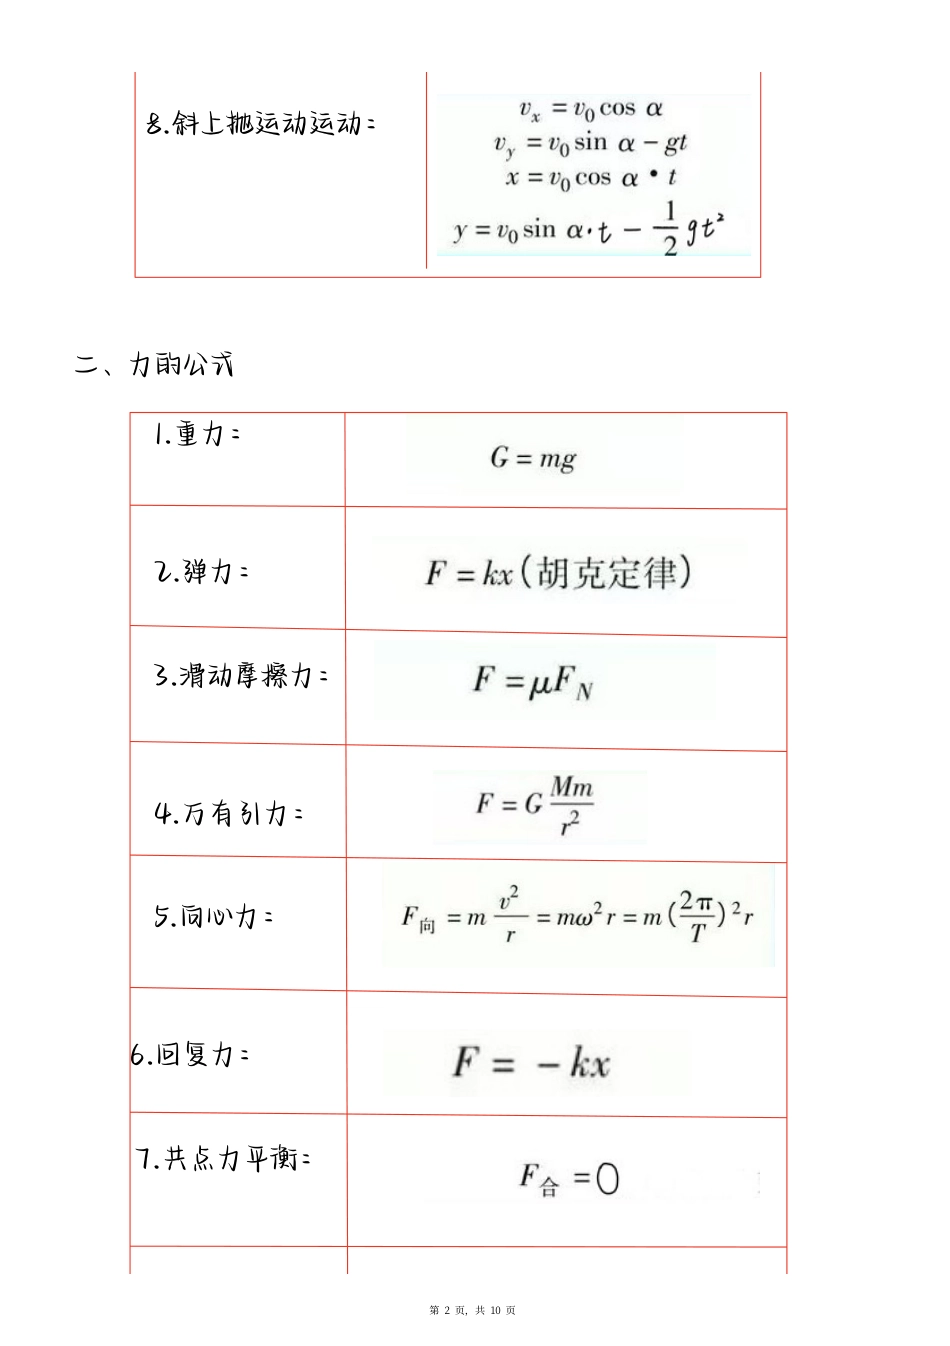 8.斜上抛运动运动:
vₓ = v₀ cos α
v_y = v₀ sin α − gt
x = v₀ cos α • t
y = v₀ sin α·t − 1/2 gt²
二、力的公式
1.重力:
G = mg
2.弹力:
F = kx(胡克定律)
3.滑动摩擦力:
F = μF_N
4.万有引力:
F = G Mm/r²
5.向心力:
F向 = m v²/r = mω²r = m(2π/T)²r
6.回复力:
F = − kx
7.共点力平衡:
F合 = 0
第 2 页, 共 10 页